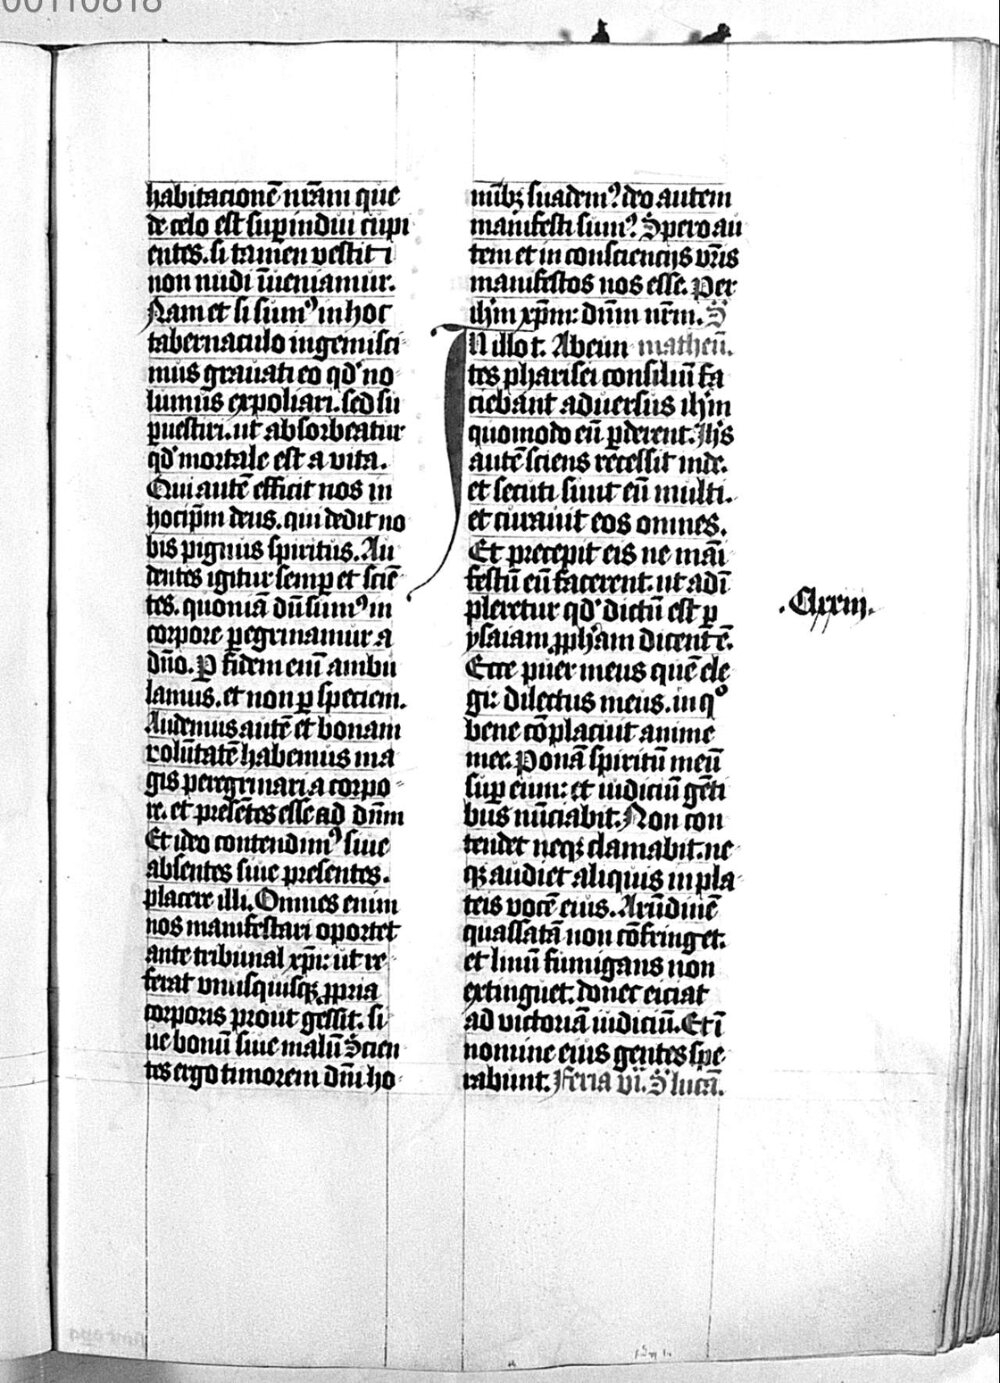 00110818
habitacionē nr̄am que
de celo est sup̄indui cupi
entes. si tamen vestiti
non nudi īueniamur.
Nam et si sumꝰ in hoc
tabernaculo ingemisci
mus grauati eo qd' no
lumus expoliari. sed su
p̄uestiri. ut absorbeatur
qd' mortale est a vita.
Qui autē efficit nos in
hoc ip̄m deus. qui dedit no
bis pignus spiritus. Au
dentes igitur semꝑ et sciē
tes. quoniā dū sumꝰ in
corpore ꝑegrinamur a
dn̄o. Ꝑ fidem enī ambu
lamus. et non ꝑ speciem.
Audemus autē et bonam
volūtatē habemus ma
gis peregrinari a corpo
re. et presētes esse ad dn̄m
Et ideo contendimꝰ siue
absentes siue presentes.
placere illi. Omnes enim
nos manifestari oportet
ante tribunal xp̄i: ut re
ferat vnusquisqꝫ ꝓpria
corporis prout gessit. si
ue bonū siue malū Scien
tes ergo timorem dn̄i ho
mībꝫ suademꝰ deo autem
manifesti sumꝰ. Spero au
tem et in conscienciis vr̄is
manifestos nos esse. Per
ih'm xp̄m: dn̄m nr̄m. S
IN illo t. Abeun matheū.
tes pharisei consiliū fa
ciebant aduersus ih'm
quomodo eū ꝑderent. Ih's
autē sciens recessit inde.
et secuti sunt eū multi.
et curauit eos omnes.
Et precepit eis ne māi
festū eū facerent. ut adī
pleretur qd' dictū est ꝑ
ysaiam ꝓph'am dicentē.
Ecce puer meus quē ele
gi: dilectus meus. in qº
bene cōplacuit anime
mee. Ponā spiritū meū
suꝑ eum: et iudiciū gēti
bus nūciabit. Non con
tendet neqꝫ clamabit. ne
qꝫ audiet aliquis in pla
teis vocē eius. Arūdinē
quassatā non cōfringet.
et linū fumigans non
extinguet. donec eiciat
ad victoriā iudiciū. Et ī
nomine eius gentes spe
rabunt. Feria vi. S' lucā.
.Clxxiij.